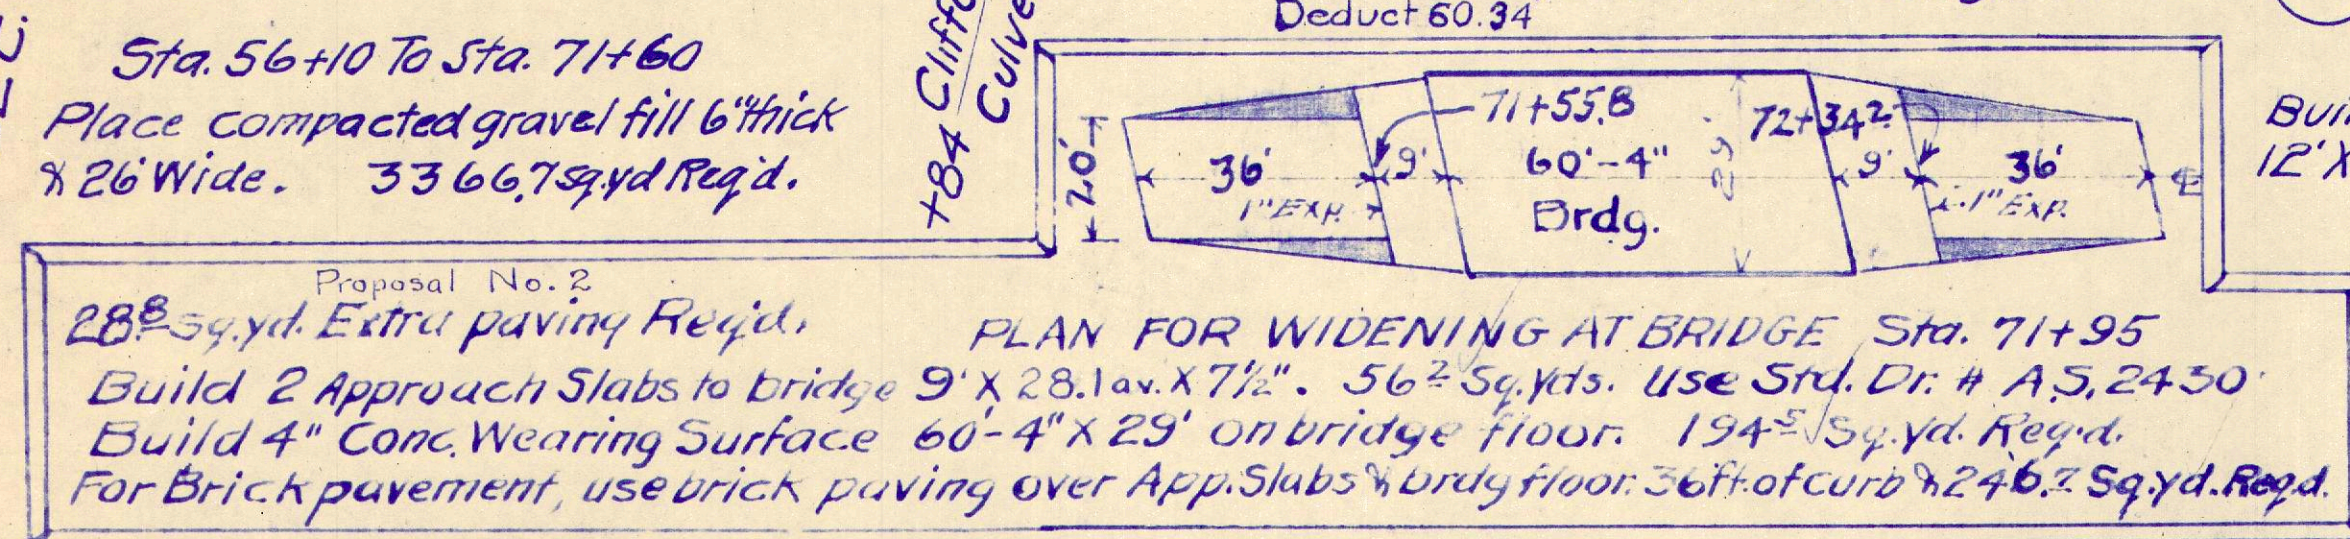 Deduct 60.34
Sta. 56+10 To Sta. 71+60
Place compacted gravel fill 6" thick
& 26' Wide. 3366.7 sq.yd Req'd.
+84
20'
36'
1" Exp.
9'
71+55.8
60'-4"
Brdg.
29'
72+34.2
9'
36'
1" Exp.
℄
12' X
Proposal No. 2
28.8 sq.yd. Extra paving Req'd.
PLAN FOR WIDENING AT BRIDGE Sta. 71+95
Build 2 Approach Slabs to bridge 9' X 28.1 av. X 7½". 56.2 Sq.yds. Use Std. Dr. # A.S. 2430
Build 4" Conc. Wearing Surface 60'-4" X 29' on bridge floor. 194.5 Sq.yd. Req'd.
For Brick pavement, use brick paving over App. Slabs & brdg floor. 36 ft. of curb & 246.7 Sq.yd. Req'd.